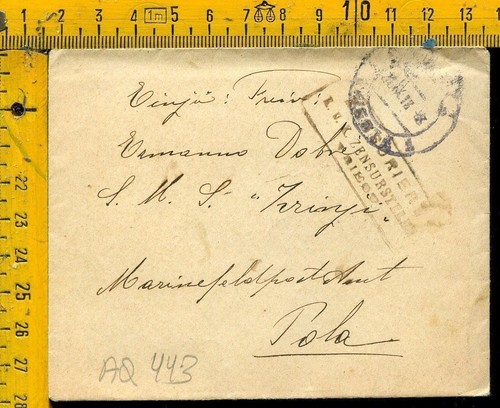 Einjä: Freiw:
Ermanno Dobre
S. M. S. "Zrinyi"
Marinefeldpost Amt
Pola
K. u. K. ZENSURSTELLE
TRIEST
AQ 443
1 2 3 4 5 1m 6 7 8 9 10 1 2 3
22
23
24
25
26
27
28